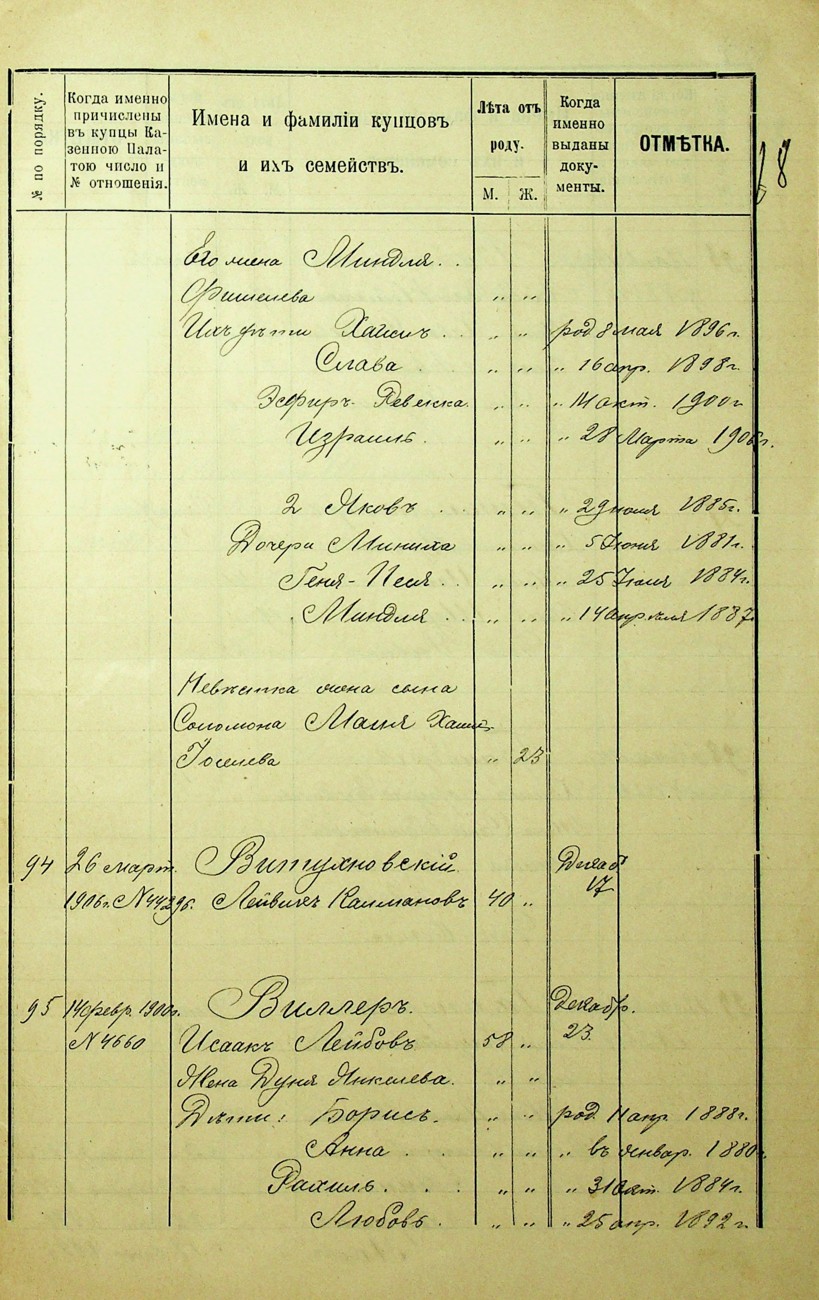 18
№ по порядку.
Когда именно
причислены
въ купцы Ка-
зенною Пала-
тою число и
№ отношенія.
Имена и фамиліи купцовъ
и ихъ семействъ.
Лѣта отъ
роду.
М. Ж.
Когда
именно
выданы
доку-
менты.
ОТМѢТКА.
Его жена Миндля . .
Фишелева " "
Ихъ дѣти Хаимъ . . " " род 8 мая 1896 г.
Слава . " " " 16 апр. 1898 г.
Эсфирь-Ревекка. " " " 14 окт. 1900 г
Израиль . " " " 28 Марта 1906 г.
2 Яковъ . " " " 29 1885 г.
Дочери Миниха " " " 5 Іюня 1881 г.
Геня-Песя . . " " " 25 Іюля 1884 г.
Миндля . . " " " 14 апрѣля 1887
Невѣстка жена сына
Соломона Маня
Іоселева " 23
94 26 март. Витухновскій Декаб
1906 г. N 44296. Лейвикъ Калмановъ 40 " 17
95 14 февр. 1900 г. Виллеръ. Декабр.
N 4660 Исаакъ Лейбовъ 58 " 23.
Жена Дуня Янкелева. " "
Дѣти: Борисъ. " " род. 11 апр. 1888 г.
Анна . . " " " въ январ. 1880 г.
Рахиль . . . " " " 31 окт. 1884 г.
Любовь . " " " 25 апр. 1892 г